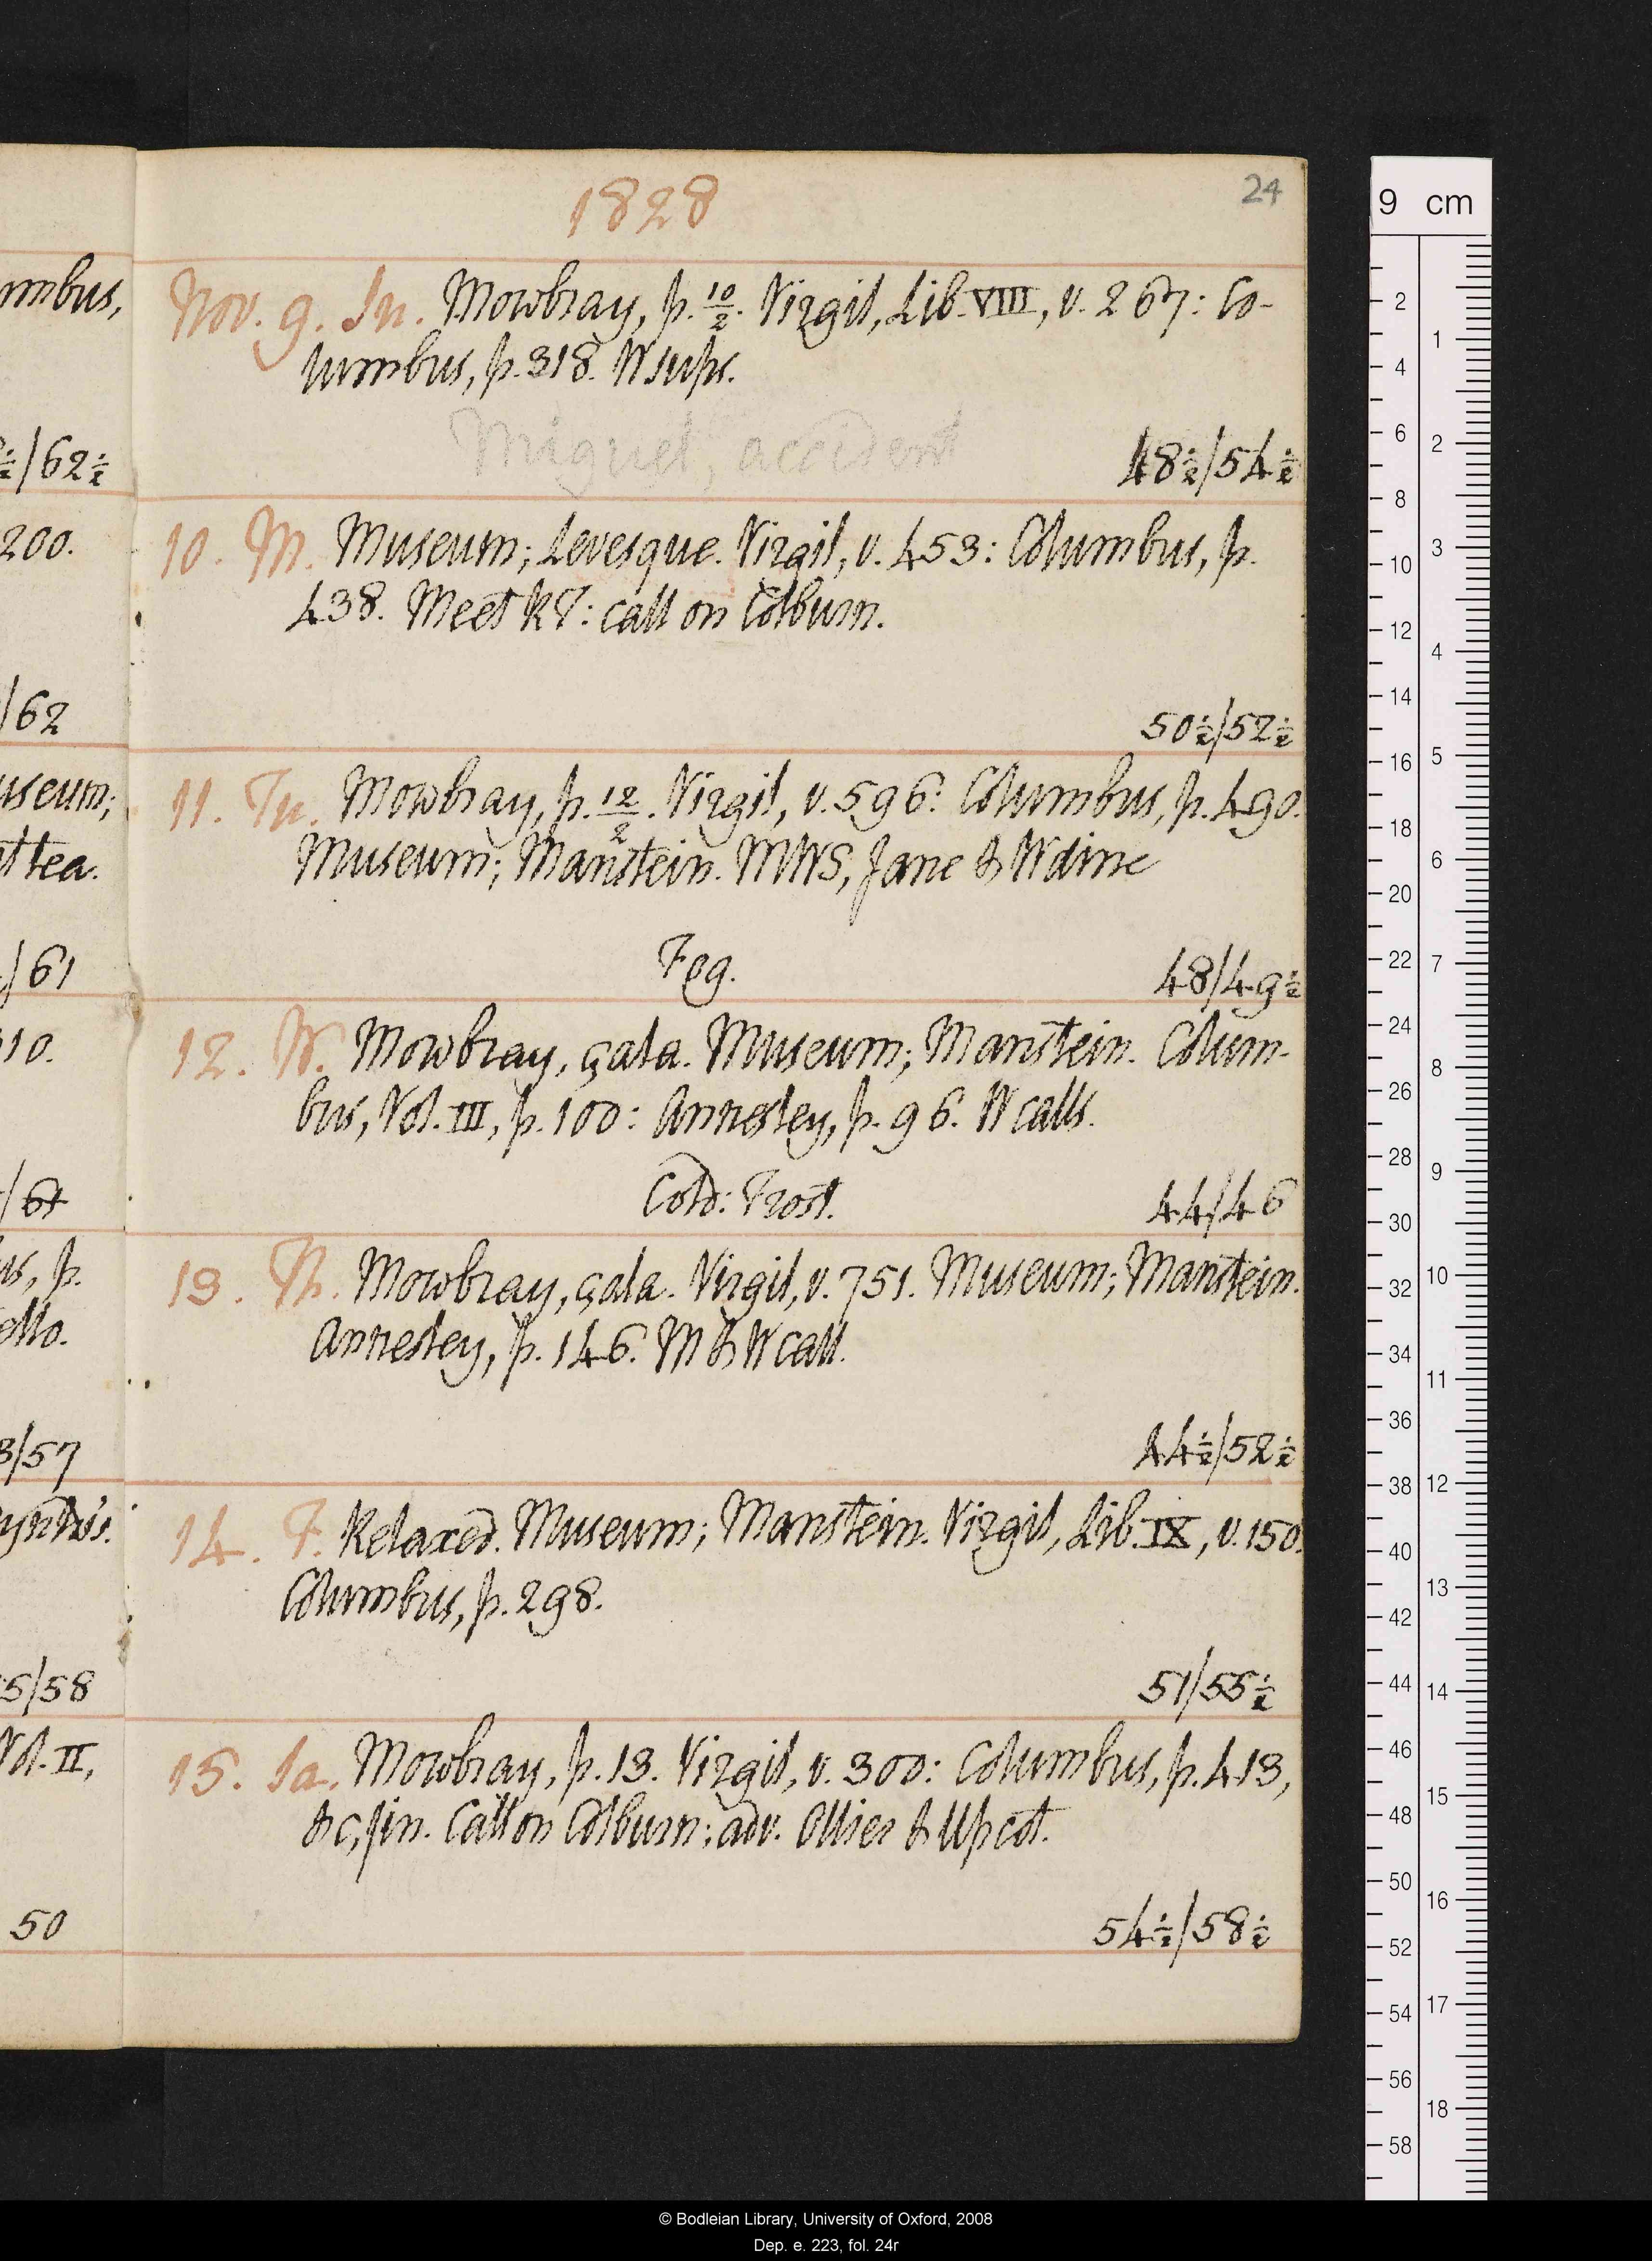 1828
24
Nov. 9. Su. Mowbray, p. 10/2. Virgil, Lib. VIII, v. 267: Co-
lumbus, p. 318. W sups.
Miguel, accident
48½/54½
10. M. Museum; Levesque. Virgil, v. 453: Columbus, p.
438. Meet RT: call on Colburn.
50½/52½
11. Tu. Mowbray, p. 12/2. Virgil, v. 596: Columbus, p. 490.
Museum; Manstein. MWS, Jane & W dine
Fog.
48/49½
12. W. Mowbray, çala. Museum; Manstein. Colum-
bus, Vol. III, p. 100: Annesley, p. 96. W calls.
Cold: Frost.
44/46
13. Th. Mowbray, çala. Virgil, v. 751. Museum; Manstein.
Annesley, p. 146. M & W call.
44½/52½
14. F. Relaxed. Museum; Manstein. Virgil, Lib. IX, v. 150.
Columbus, p. 298.
51/55½
15. Sa. Mowbray, p. 13. Virgil, v. 300: Columbus, p. 413,
&c, fin. Call on Colburn; adv. Ollier & Upcot.
54½/58½
mbus,
/62½
200.
/62
useum;
t tea.
/61
10.
/61
us, p.
ello.
3/57
5/58
Vol. II,
50
9 cm
2
4
6
8
10
12
14
16
18
20
22
24
26
28
30
32
34
36
38
40
42
44
46
48
50
52
54
56
58
1
2
3
4
5
6
7
8
9
10
11
12
13
14
15
16
17
18
© Bodleian Library, University of Oxford, 2008
Dep. e. 223, fol. 24r